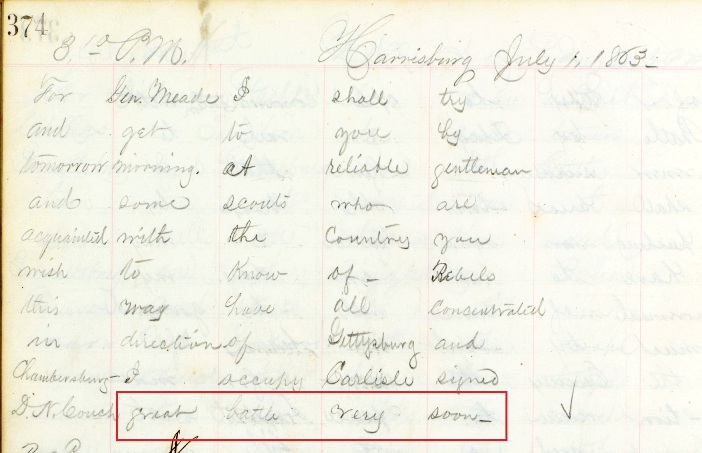 374
3.10 P.M. Harrisburg July 1, 1863-
For Gen. Meade I shall try
and get to you by
tomorrow morning. at reliable gentleman
and some scouts who are
acquainted with the Country you
wish to know of- Rebels
this way have all concentrated
in direction of Gettysburg and
Chambersburg- I occupy Carlisle signed
D. N. Couch great battle very soon-